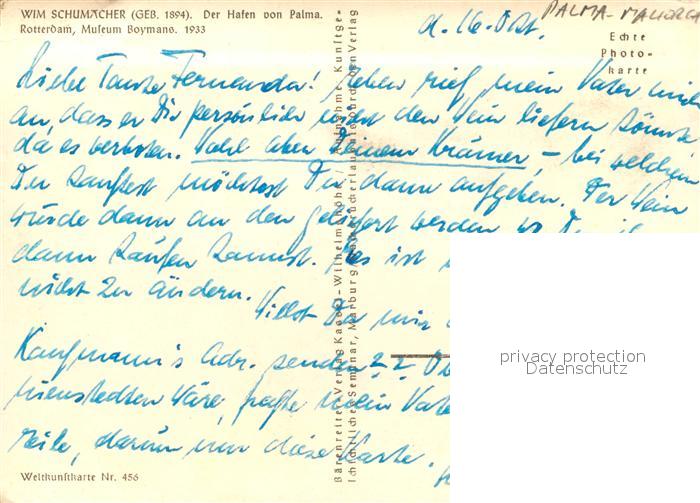 WIM SCHUMACHER (GEB. 1894). Der Hafen von Palma.
Rotterdam, Museum Boymans. 1933
PALMA-MALLORCA
d. 16. Okt.
Echte
Photo-
karte
Liebe Tante Fernanda! Soeben rief mein Vater mich
an, dass er Dir persönlich nicht den Wein liefern könnte,
da es verboten. Wohl aber Deinem Krämer, – bei welchem
Du kaufst möchtest Du dann aufgeben. Der Wein
würde dann an den geliefert werden wo Du ihn
dann kaufen kannst. Es ist
nicht zu ändern.
Willst Du mir
Kaufmann's Adr. senden??
nienstedten wäre, sagte mein Vater
Eile, darum nur diese Karte.
Bärenreiter-Verlag Kassel-Wilhelmshöhe / Aufnahme: Kunstge-
schichtliches Seminar, Marburg
privacy protection
Datenschutz
Weltkunstkarte Nr. 456